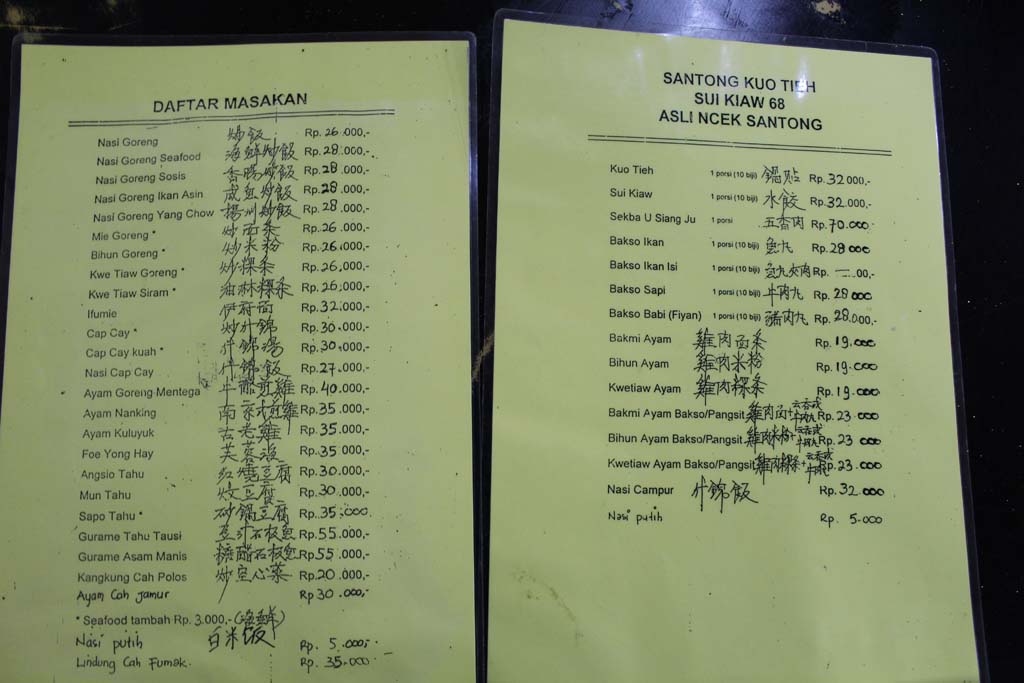 DAFTAR MASAKAN
Nasi Goreng 炒飯 Rp. 26.000,-
Nasi Goreng Seafood 海鮮炒飯 Rp. 28.000,-
Nasi Goreng Sosis 香腸炒飯 Rp. 28.000,-
Nasi Goreng Ikan Asin 咸魚炒飯 Rp. 28.000,-
Nasi Goreng Yang Chow 揚州炒飯 Rp. 28.000,-
Mie Goreng * 炒面条 Rp. 26.000,-
Bihun Goreng * 炒米粉 Rp. 26.000,-
Kwe Tiaw Goreng * 炒粿条 Rp. 26.000,-
Kwe Tiaw Siram * 油淋粿条 Rp. 26.000,-
Ifumie 伊府面 Rp. 32.000,-
Cap Cay * 炒什錦 Rp. 30.000,-
Cap Cay kuah * 什錦湯 Rp. 30.000,-
Nasi Cap Cay 什錦飯 Rp. 27.000,-
Ayam Goreng Mentega 牛酪煎雞 Rp. 40.000,-
Ayam Nanking 南京煎雞 Rp. 35.000,-
Ayam Kuluyuk 古老雞 Rp. 35.000,-
Foe Yong Hay 芙蓉 Rp. 35.000,-
Angsio Tahu 红燒豆腐 Rp. 30.000,-
Mun Tahu 炆豆腐 Rp. 30.000,-
Sapo Tahu * 砂鍋豆腐 Rp. 35.000,-
Gurame Tahu Tausi 豆汁石板魚 Rp. 55.000,-
Gurame Asam Manis 糖醋石板魚 Rp. 55.000,-
Kangkung Cah Polos 炒空心菜 Rp. 20.000,-
Ayam Cah jamur Rp 30.000,-
* Seafood tambah Rp. 3.000,- (海鮮)
Nasi putih 白米飯 Rp. 5.000,-
Lindung Cah Fumak. Rp. 35.000
SANTONG KUO TIEH
SUI KIAW 68
ASLI NCEK SANTONG
Kuo Tieh 1 porsi (10 biji) 鍋貼 Rp. 32.000,-
Sui Kiaw 1 porsi (10 biji) 水餃 Rp. 32.000,-
Sekba U Siang Ju 1 porsi 五香肉 Rp. 70.000.-
Bakso Ikan 1 porsi (10 biji) 魚丸 Rp. 28.000
Bakso Ikan Isi 1 porsi (10 biji) 魚丸夾肉 Rp. —.00,-
Bakso Sapi 1 porsi (10 biji) 牛肉丸 Rp. 28.000
Bakso Babi (Fiyan) 1 porsi (10 biji) 豬肉丸 Rp. 28.000,-
Bakmi Ayam 雞肉面条 Rp. 19.000
Bihun Ayam 雞肉米粉 Rp. 19.000
Kwetiaw Ayam 雞肉粿条 Rp. 19.000
Bakmi Ayam Bakso/Pangsit 雞肉面+云吞或牛肉丸 Rp. 23.000
Bihun Ayam Bakso/Pangsit 雞肉米粉+云吞或牛肉丸 Rp. 23.000
Kwetiaw Ayam Bakso/Pangsit 雞肉粿条+云吞或牛肉丸 Rp. 23.000
Nasi Campur 什錦飯 Rp. 32.000
Nasi putih Rp. 5.000